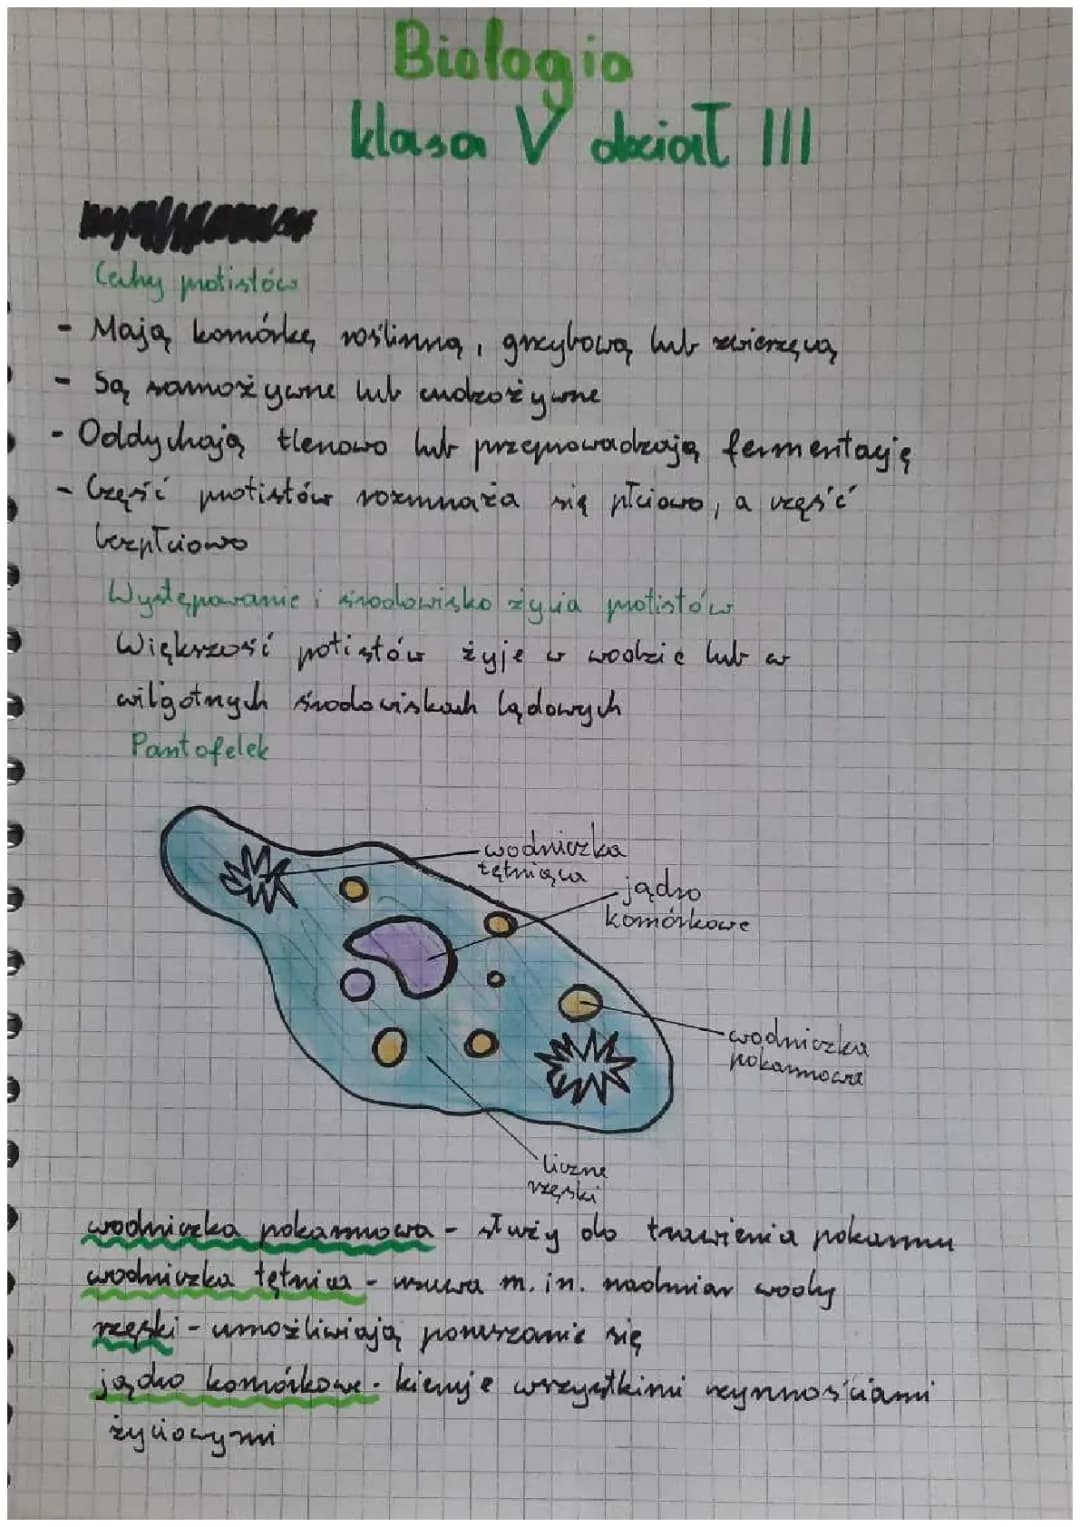 Biologia
klasa V dział III
Cechy protistów
- Mają komórkę roślinną, grzybową lub zwierzęcą
- Są samożywne lub cudzożywne
- Oddychają tlenowo lub przeprowadzają fermentację
- Część protistów rozmnaża się płciowo, a część
bezpłciowo
Występowanie i środowisko życia protistów
Większość potistów żyje w wodzie lub w
wilgotnych środowiskach lądowych
Pantofelek
wodniczka
tętniąca
jądro
komórkowe
wodniczka
pokarmowa
liczne
rzęski
wodniczka pokarmowa - służy do trawienia pokarmu
wodniczka tętnica - usuwa m. in. nadmiar wody
rzęski - umożliwiają poruszanie się
jądro komórkowe - kieruje wszystkimi czynnościami
życiowymi